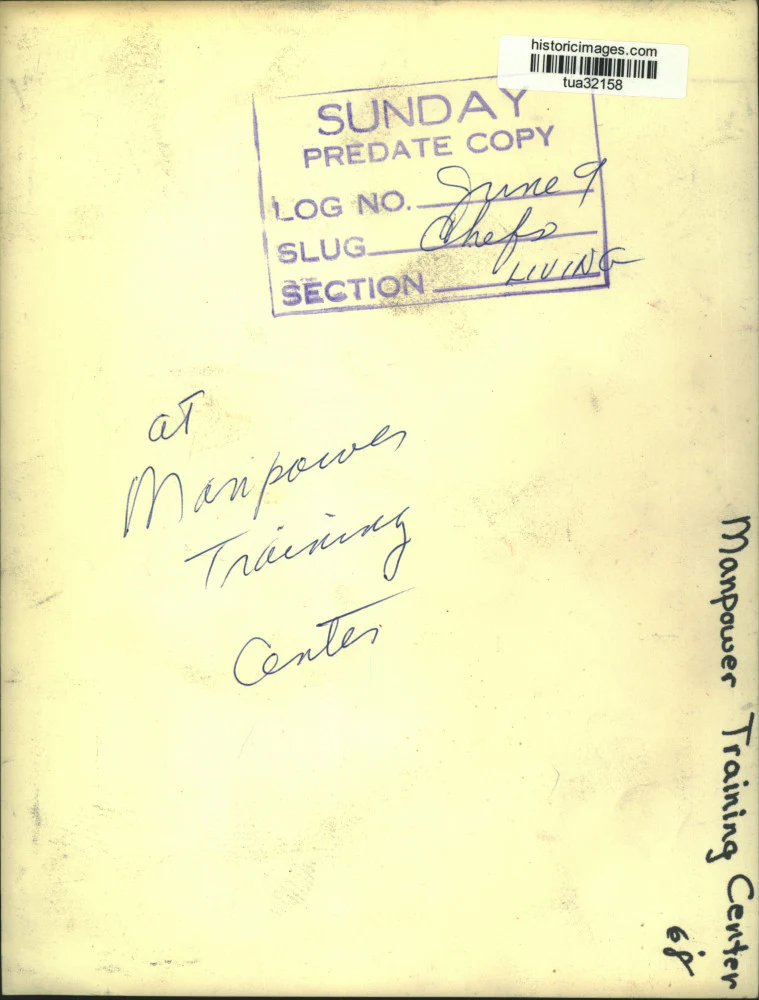 historicimages.com
tua32158
SUNDAY
PREDATE COPY
LOG NO. June 9
SLUG Chefs
SECTION LIVING
at
Manpower
Training
Center
Manpower Training Center